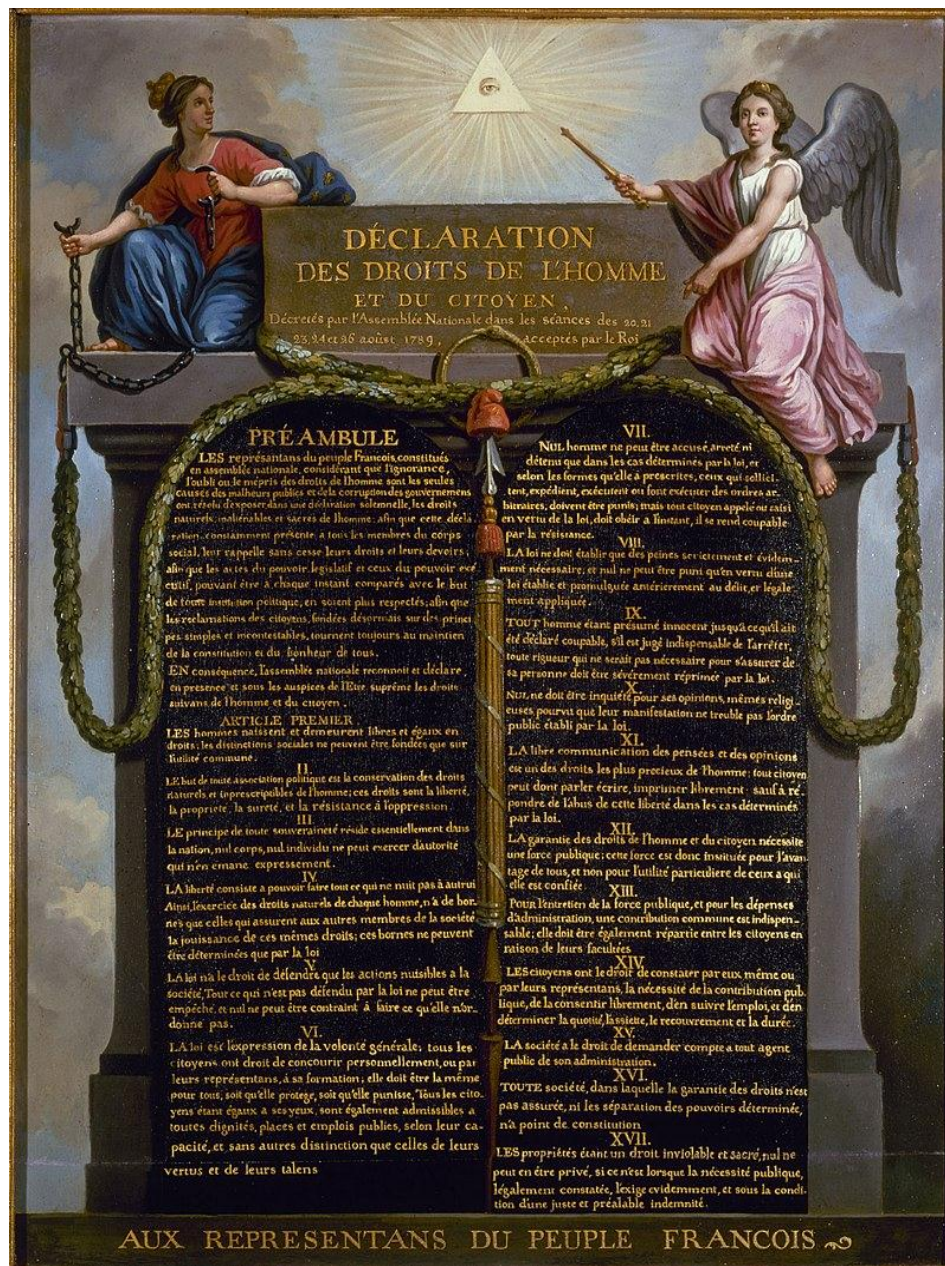 DÉCLARATION
DES DROITS DE L'HOMME
ET DU CITOYEN,
Décretés par l'Assemblée Nationale dans les séances des 20, 21
23, 24 et 26 aoûst 1789, acceptés par le Roi
PRÉAMBULE
LES représantans du peuple François, constitués
en assemblée nationale, considérant que l'ignorance,
l'oubli ou le mépris des droits de l'homme sont les seules
causes des malheurs publics et de la corruption des gouvernemens
ont résolu d'exposer dans une déclaration solemnelle, les droits
naturels, inaliénables et sacrés de l'homme; afin que cette décla
ration, constamment présente a tous les membres du corps
social, leur rappelle sans cesse leurs droits et leurs devoirs,
afin que les actes du pouvoir législatif et ceux du pouvoir exé
cutif, pouvant être à chaque instant comparés avec le but
de toute institution politique, en soient plus respectés; afin que
les reclamations des citoyens, fondées désormais sur des princi
pes simples et incontestables, tournent toujours au maintien
de la constitution et du bonheur de tous.
EN conséquence, l'assemblée nationale reconnoit et déclare,
en presence et sous les auspices de l'Etre suprême les droits
suivans de l'homme et du citoyen.
ARTICLE PREMIER
LES hommes naissent et demeurent libres et égaux en
droits; les distinctions sociales ne peuvent être fondées que sur
l'utilité commune.
II.
LE but de toute association politique est la conservation des droits
naturels et inprescriptibles de l'homme; ces droits sont la liberté,
la propriété, la sureté, et la résistance à l'oppression.
III.
LE principe de toute souveraineté réside essentiellement dans
la nation, nul corps, nul individu ne peut exercer d'autorité
qui n'en émane expressement.
IV.
LA liberté consiste a pouvoir faire tout ce qui ne nuit pas à autrui
Ainsi, l'exercice des droits naturels de chaque homme, n'a de bor-
nes que celles qui assurent aux autres membres de la société
la jouissance de ces mêmes droits; ces bornes ne peuvent
être déterminées que par la loi
V.
LA loi n'a le droit de défendre que les actions nuisibles a la
société, Tout ce qui n'est pas défendu par la loi ne peut être
empêché, et nul ne peut être contraint à faire ce qu'elle n'or-
donne pas.
VI.
LA loi est l'expression de la volonté générale; tous les
citoyens ont droit de concourir personnellement, ou par
leurs représentans, à sa formation; elle doit être la même
pour tous, soit qu'elle protege, soit qu'elle punisse, Tous les cito-
yens étant égaux a ses yeux, sont également admissibles a
toutes dignités, places et emplois publics, selon leur ca-
pacité, et sans autres distinction que celles de leurs
vertus et de leurs talens
VII.
NUL homme ne peut être accusé, arreté, ni
détenu que dans les cas déterminés par la loi, et
selon les formes qu'elle à prescrites, ceux qui sollici-
tent, expédient, exécutent ou font exécuter des ordres ar-
bitraires, doivent être punis; mais tout citoyen appelé ou saisi
en vertu de la loi, doit obéir a l'instant, il se rend coupable
par la résistance.
VIII.
LA loi ne doit établir que des peines strictement et évidem-
ment nécessaire, et nul ne peut être puni qu'en vertu d'une
loi établie et promulguée antérierement au délit, et légale-
ment appliquée.
IX.
TOUT homme étant présumé innocent jusqu'a ce qu'il ait
été déclaré coupable, s'il est jugé indispensable de l'arrêter,
toute rigueur qui ne serait pas nécessaire pour s'assurer de
sa personne doit être sévèrement réprimée par la loi.
X.
NUL ne doit être inquiété pour ses opinions, mêmes religi-
euses pourvu que leur manifestation ne trouble pas l'ordre
public établi par la loi.
XI.
LA libre communication des pensées et des opinions
est un des droits les plus precieux de l'homme; tout citoyen
peut dont parler écrire, imprimer librement: sauf à ré-
pondre de l'abus de cette liberté dans les cas déterminés
par la loi.
XII.
LA garantie des droits de l'homme et du citoyen nécessite
une force publique; cette force est donc instituée pour l'avan-
tage de tous, et non pour l'utilité particuliere de ceux a qui
elle est confiée
XIII.
POUR l'entretien de la force publique, et pour les dépenses
d'administration, une contribution commune est indispen-
sable; elle doit être également répartie entre les citoyens en
raison de leurs facultées
XIV.
LES citoyens ont le droit de constater par eux même ou
par leurs représentans, la nécessité de la contribution pub-
lique, de la consentir librement, d'en suivre l'emploi, et d'en
déterminer la quotité, l'assiette, le recouvrement et la durée.
XV.
LA société a le droit de demander compte a tout agent
public de son administration.
XVI.
TOUTE société, dans laquelle la garantie des droits n'est
pas assurée, ni les séparation des pouvoirs déterminée,
n'a point de constitution
XVII.
LES propriétés étant un droit inviolable et sacré, nul ne
peut en être privé, si ce n'est lorsque la nécessité publique,
légalement constatée, l'exige evidemment, et sous la condi-
tion d'une juste et préalable indemnité.
AUX REPRESENTANS DU PEUPLE FRANCOIS